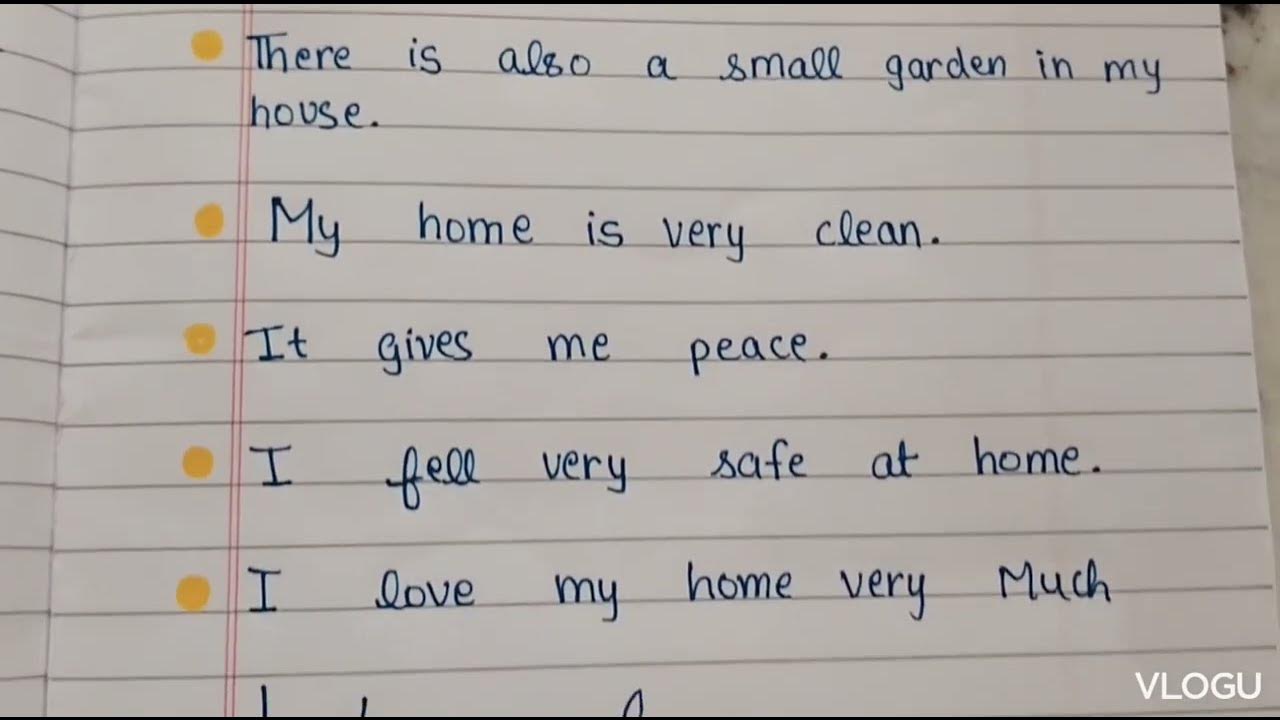 There is also a small garden in my
house.
My home is very clean.
It gives me peace.
I fell very safe at home.
I love my home very Much
VLOGU